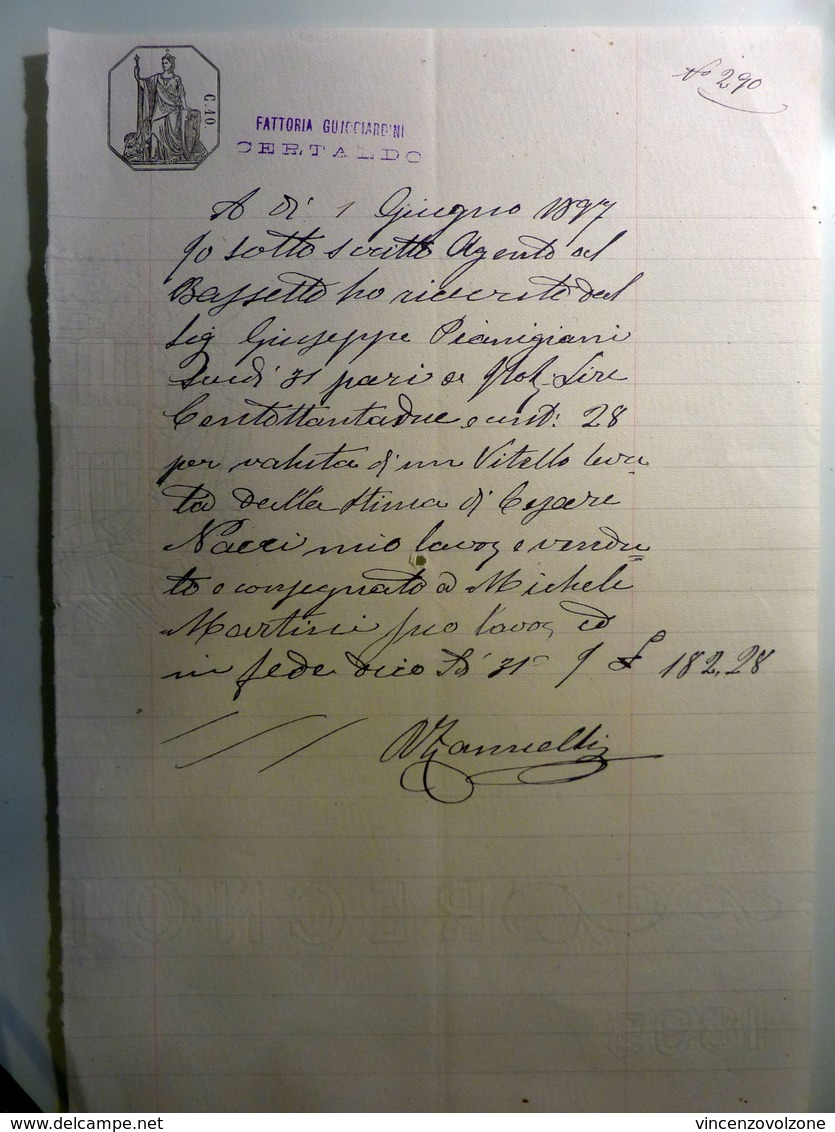 C. 10.
No 290
FATTORIA GUICCIARDINI
CERTALDO
A di 1 Giugno 1897
Io sotto scritto Agente al
Bassetto ho ricevuto dal
Sig Giuseppe Pianigiani
Scudi 31 pari a Ital. Lire
Centottantadue e cnt: 28
per valuta di un Vitello leva=
to dalla stima di Cesare
mio lavor e vendu=
to e consegnato a Michele
Martini suo lavor ed
in fede dico Sdi 31 £ 182,28
1895
vincenzovolzone